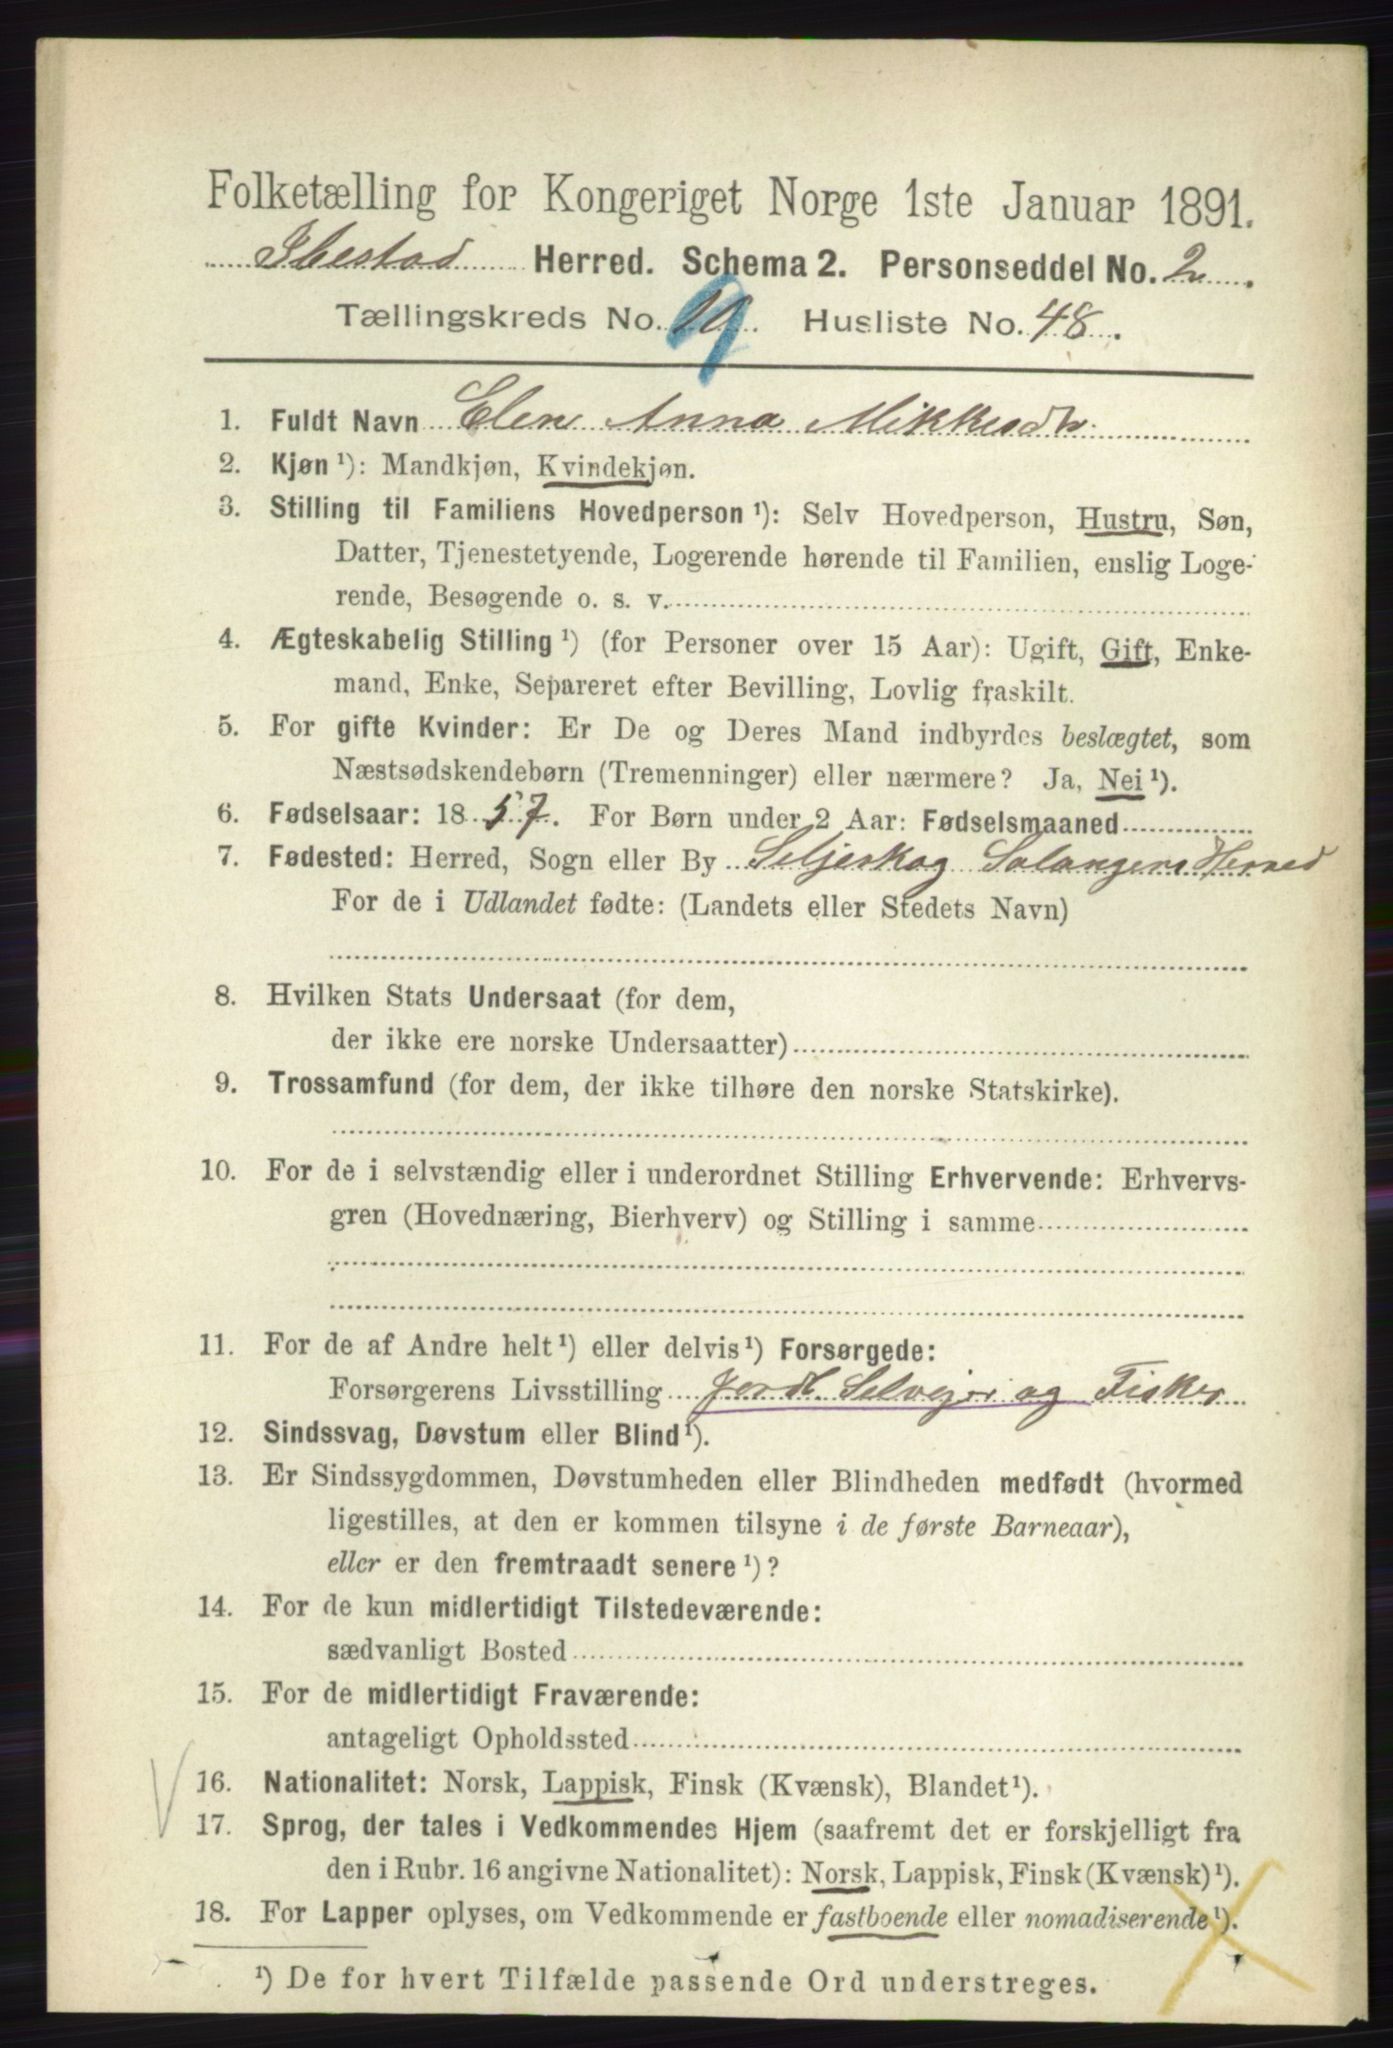 Folketælling for Kongeriget Norge 1ste Januar 1891.
Ibestad Herred. Schema 2. Personseddel No. 2.
Tællingskreds No. 9. Husliste No. 48.
1. Fuldt Navn Elen Anna Mikkesdtr.
2. Kjøn ¹): Mandkjøn, Kvindekjøn.
3. Stilling til Familiens Hovedperson ¹): Selv Hovedperson, Hustru, Søn,
Datter, Tjenestetyende, Logerende hørende til Familien, enslig Loge-
rende, Besøgende o. s. v.
4. Ægteskabelig Stilling ¹) (for Personer over 15 Aar): Ugift, Gift, Enke-
mand, Enke, Separeret efter Bevilling, Lovlig fraskilt.
5. For gifte Kvinder: Er De og Deres Mand indbyrdes beslægtet, som
Næstsødskendebørn (Tremenninger) eller nærmere? Ja, Nei ¹).
6. Fødselsaar: 1857. For Børn under 2 Aar: Fødselsmaaned
7. Fødested: Herred, Sogn eller By Seljeskog Salangens Herred
For de i Udlandet fødte: (Landets eller Stedets Navn)
8. Hvilken Stats Undersaat (for dem,
der ikke ere norske Undersaatter)
9. Trossamfund (for dem, der ikke tilhøre den norske Statskirke).
10. For de i selvstændig eller i underordnet Stilling Erhvervende: Erhvervs-
gren (Hovednæring, Bierhverv) og Stilling i samme
11. For de af Andre helt ¹) eller delvis ¹) Forsørgede:
Forsørgerens Livsstilling Jordb. Selvejer og Fisker
12. Sindssvag, Døvstum eller Blind ¹).
13. Er Sindssygdommen, Døvstumheden eller Blindheden medfødt (hvormed
ligestilles, at den er kommen tilsyne i de første Barneaar),
eller er den fremtraadt senere ¹)?
14. For de kun midlertidigt Tilstedeværende:
sædvanligt Bosted
15. For de midlertidigt Fraværende:
antageligt Opholdssted
16. Nationalitet: Norsk, Lappisk, Finsk (Kvænsk), Blandet ¹).
17. Sprog, der tales i Vedkommendes Hjem (saafremt det er forskjelligt fra
den i Rubr. 16 angivne Nationalitet): Norsk, Lappisk, Finsk (Kvænsk) ¹).
18. For Lapper oplyses, om Vedkommende er fastboende eller nomadiserende ¹).
¹) De for hvert Tilfælde passende Ord understreges.